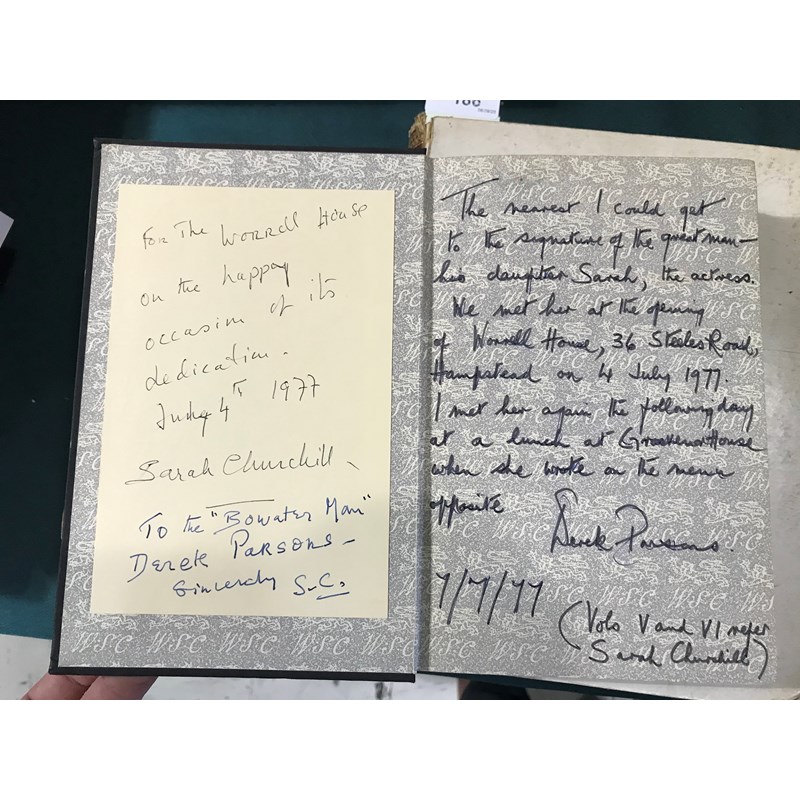 For The Worrell House
on the happy
occasion of its
dedication.
July 4th 1977
Sarah Churchill
To the "Bowater Man"
Derek Parsons -
Sincerely S.C.
The nearest I could get
to the signature of the great man -
his daughter Sarah, the actress.
We met her at the opening
of Worrell House, 36 Steeles Road,
Hampstead on 4 July 1977.
I met her again the following day
at a lunch at Grosvenor House
when she wrote on the menu
opposite
Derek Parsons.
7/7/77
(Vols V and VI refer
Sarah Churchill)
WSC WSC WSC WSC